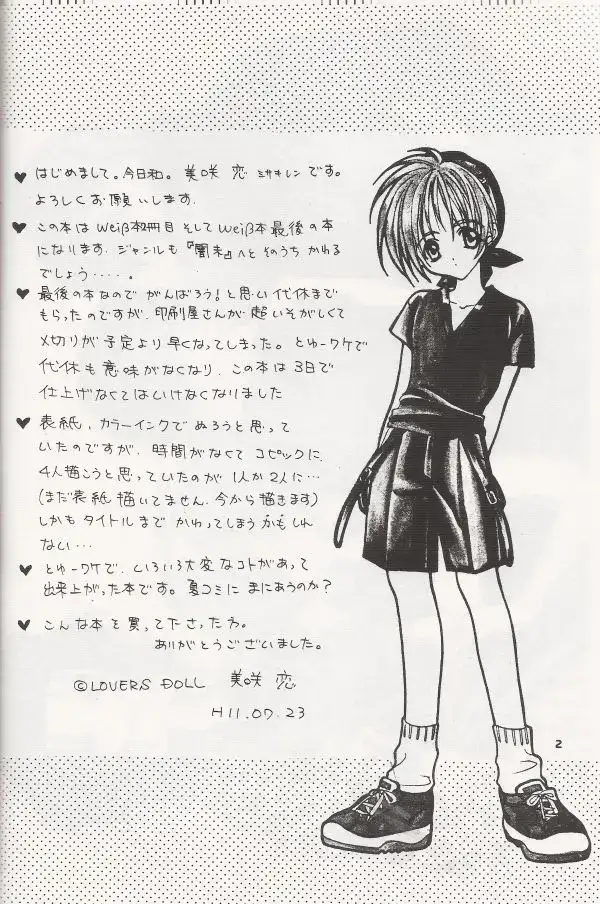 ♥ はじめまして。今日和。美咲 恋 ミサキレン です。
よろしくお願いします。
♥ この本はWeiß本2冊目 そして Weiß本最後の本
になります。ジャンルも『闇末』へと そのうち かわる
でしょう……。
♥ 最後の本なので がんばろう!と思い 代休まで
もらったのですが、印刷屋さんが 超いそがしくて
〆切りが予定より 早くなってしまった。とゆーワケで
代休も意味がなくなり、この本は 3日で
仕上げなくてはいけなくなりました
♥ 表紙、カラーインクで ぬろうと思って
いたのですが、時間がなくて コピックに、
4人描こうと思っていたのが 1人か2人に…
(まだ表紙 描いてません。今から描きます)
しかも タイトルまで かわってしまう かもしれ
ない…
♥ とゆーワケで、いろいろ大変なコトがあって
出来上がった本です。夏コミに まにあうのか?
♥ こんな本を買って下さった方。
ありがとうございました。
©LOVERS DOLL 美咲 恋
H11.07.23
2